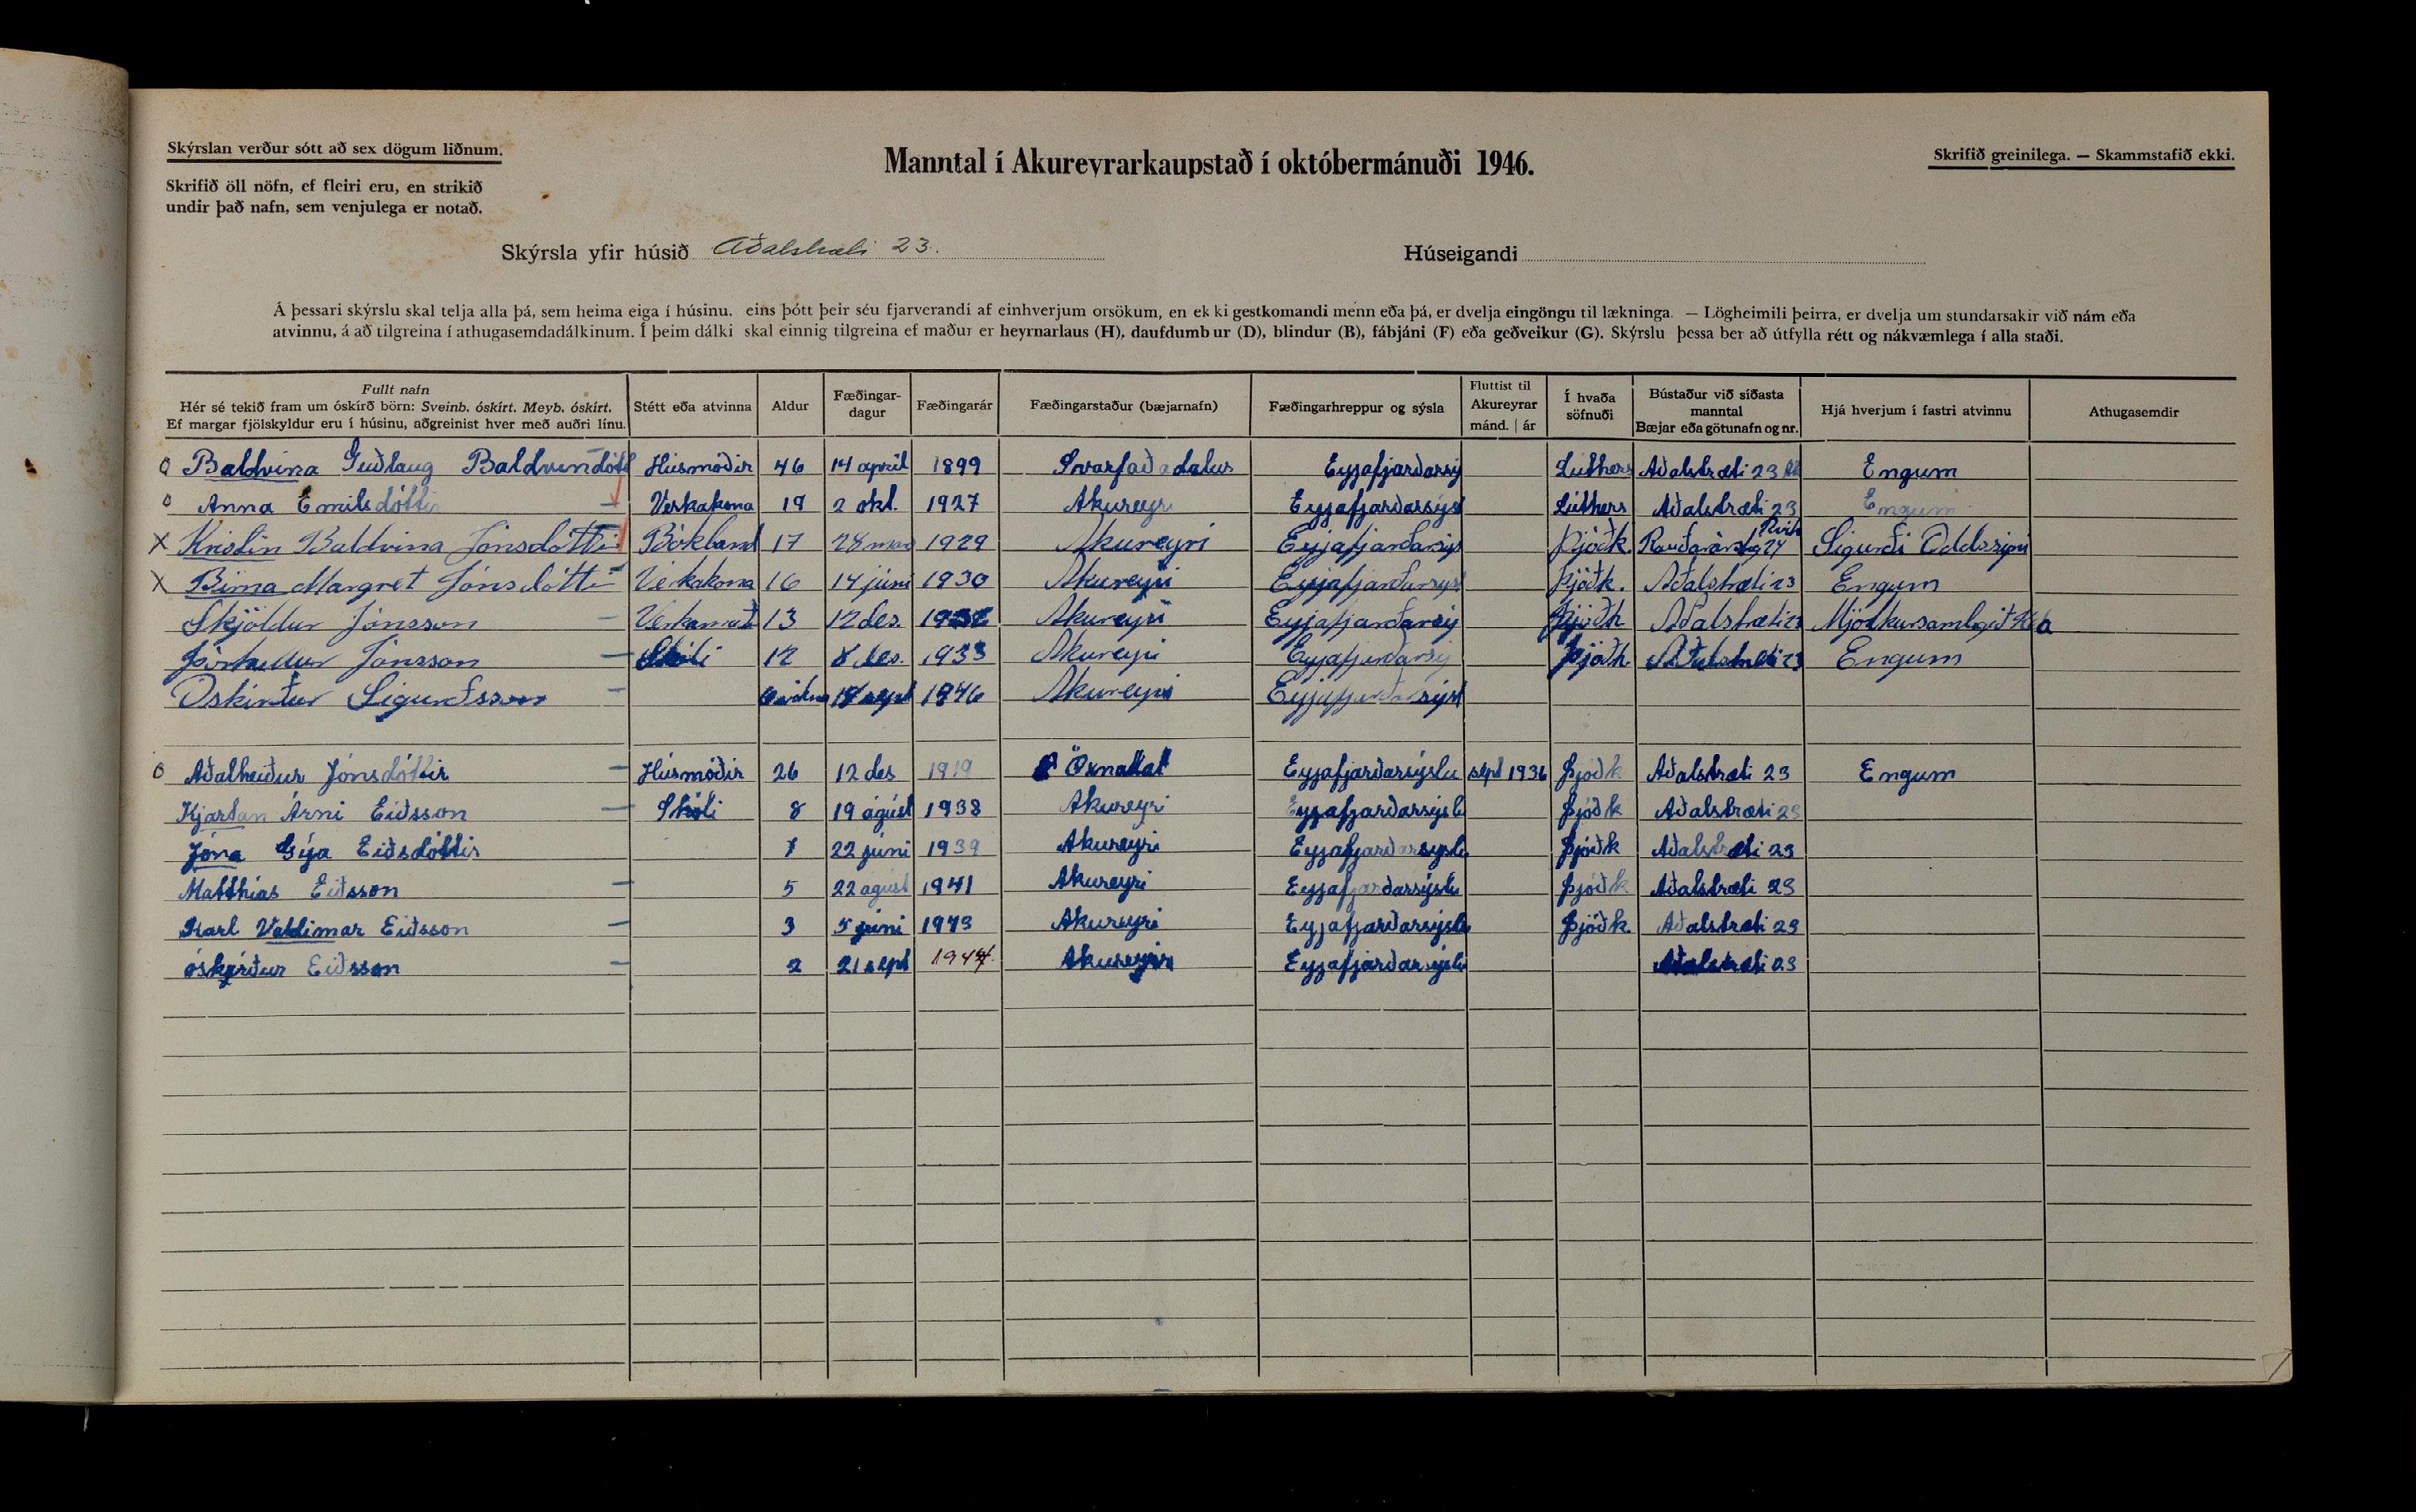 Skýrslan verður sótt að sex dögum liðnum.
Skrifið öll nöfn, ef fleiri eru, en strikið
undir það nafn, sem venjulega er notað.
Manntal í Akureyrarkaupstað í októbermánuði 1946.
Skrifið greinilega. — Skammstafið ekki.
Skýrsla yfir húsið Aðalstræti 23.
Húseigandi
Á þessari skýrslu skal telja alla þá, sem heima eiga í húsinu, eins þótt þeir séu fjarverandi af einhverjum orsökum, en ekki gestkomandi menn eða þá, er dvelja eingöngu til lækninga. — Lögheimili þeirra, er dvelja um stundarsakir við nám eða
atvinnu, á að tilgreina í athugasemdadálkinum. Í þeim dálki skal einnig tilgreina ef maður er heyrnarlaus (H), daufdumbur (D), blindur (B), fábjáni (F) eða geðveikur (G). Skýrslu þessa ber að útfylla rétt og nákvæmlega í alla staði.
Fullt nafn Hér sé tekið fram um óskírð börn: Sveinb. óskírt. Meyb. óskírt. Ef margar fjölskyldur eru í húsinu, aðgreinist hver með auðri línu. Stétt eða atvinna Aldur Fæðingar-dagur Fæðingarár Fæðingarstaður (bæjarnafn) Fæðingarhreppur og sýsla Fluttist til Akureyrar mánd. | ár Í hvaða söfnuði Bústaður við síðasta manntal Bæjar eða götunafn og nr. Hjá hverjum í fastri atvinnu Athugasemdir
o Baldvina Guðlaug Baldvinsdótt Húsmóðir 46 14 apríl 1899 Svarfaðadalur Eyjafjarðarsý Lúthers Aðalstræti 23 Engum
o Anna Emilsdóttir Verkakona 19 2 okt. 1927 Akureyri Eyjafjarðarsýsl Lúthers Aðalstræti 23 Engum
X Kristín Baldvina Jónsdóttir Bókband 17 28 maí 1929 Akureyri Eyjafjarðarsýs Þjóðk. Rauðarárstíg 24 Rvík Sigurði Oddssyni
X Birna Margret Jónsdótti Verkakona 16 14 júní 1930 Akureyri Eyjafjarðarsýsl Þjóðk. Aðalstræti 23 Engum
Skjöldur Jónsson Verkamað 13 12 des. 1932 Akureyri Eyjafjarðarsý Þjóðk Aðalstræti 23 Mjólkursamlagið Kea
Þorkellur Jónsson Skóli 12 8 des. 1933 Akureyri Eyjafjarðarsý Þjóðk. Aðalstræti 23 Engum
Óskírður Sigurðsson 18 sept 1946 Akureyri Eyjafjarðarsýsl
o Aðalheiður Jónsdóttir Húsmóðir 26 12 des 1919 Öxnadal Eyjafjarðarsýslu sept 1936 Þjóðk Aðalstræti 23 Engum
Kjartan Árni Eiðsson Skóli 8 19 ágúst 1938 Akureyri Eyjafjarðarsýsl Þjóðk Aðalstræti 23
Jóna Gýja Eiðsdóttir 7 22 júni 1939 Akureyri Eyjafjarðarsýslu Þjóðk Aðalstræti 23
Matthías Eiðsson 5 22 ágúst 1941 Akureyri Eyjafjarðarsýslu Þjóðk Aðalstræti 23
Karl Valdimar Eiðsson 3 5 júni 1943 Akureyri Eyjafjarðarsýslu Þjóðk. Aðalstræti 23
óskýrður Eiðsson 2 21 sept 1944. Akureyri Eyjafjarðarsýslu Aðalstræti 23